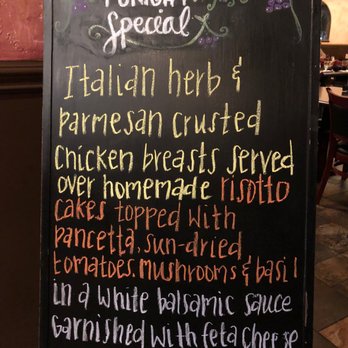 TONIGHT'S
Special
Italian herb &
parmesan crusted
chicken breasts served
over homemade risotto
cakes topped with
pancetta, sun-dried
tomatoes, mushrooms & basil
in a white balsamic sauce
Garnished with feta cheese